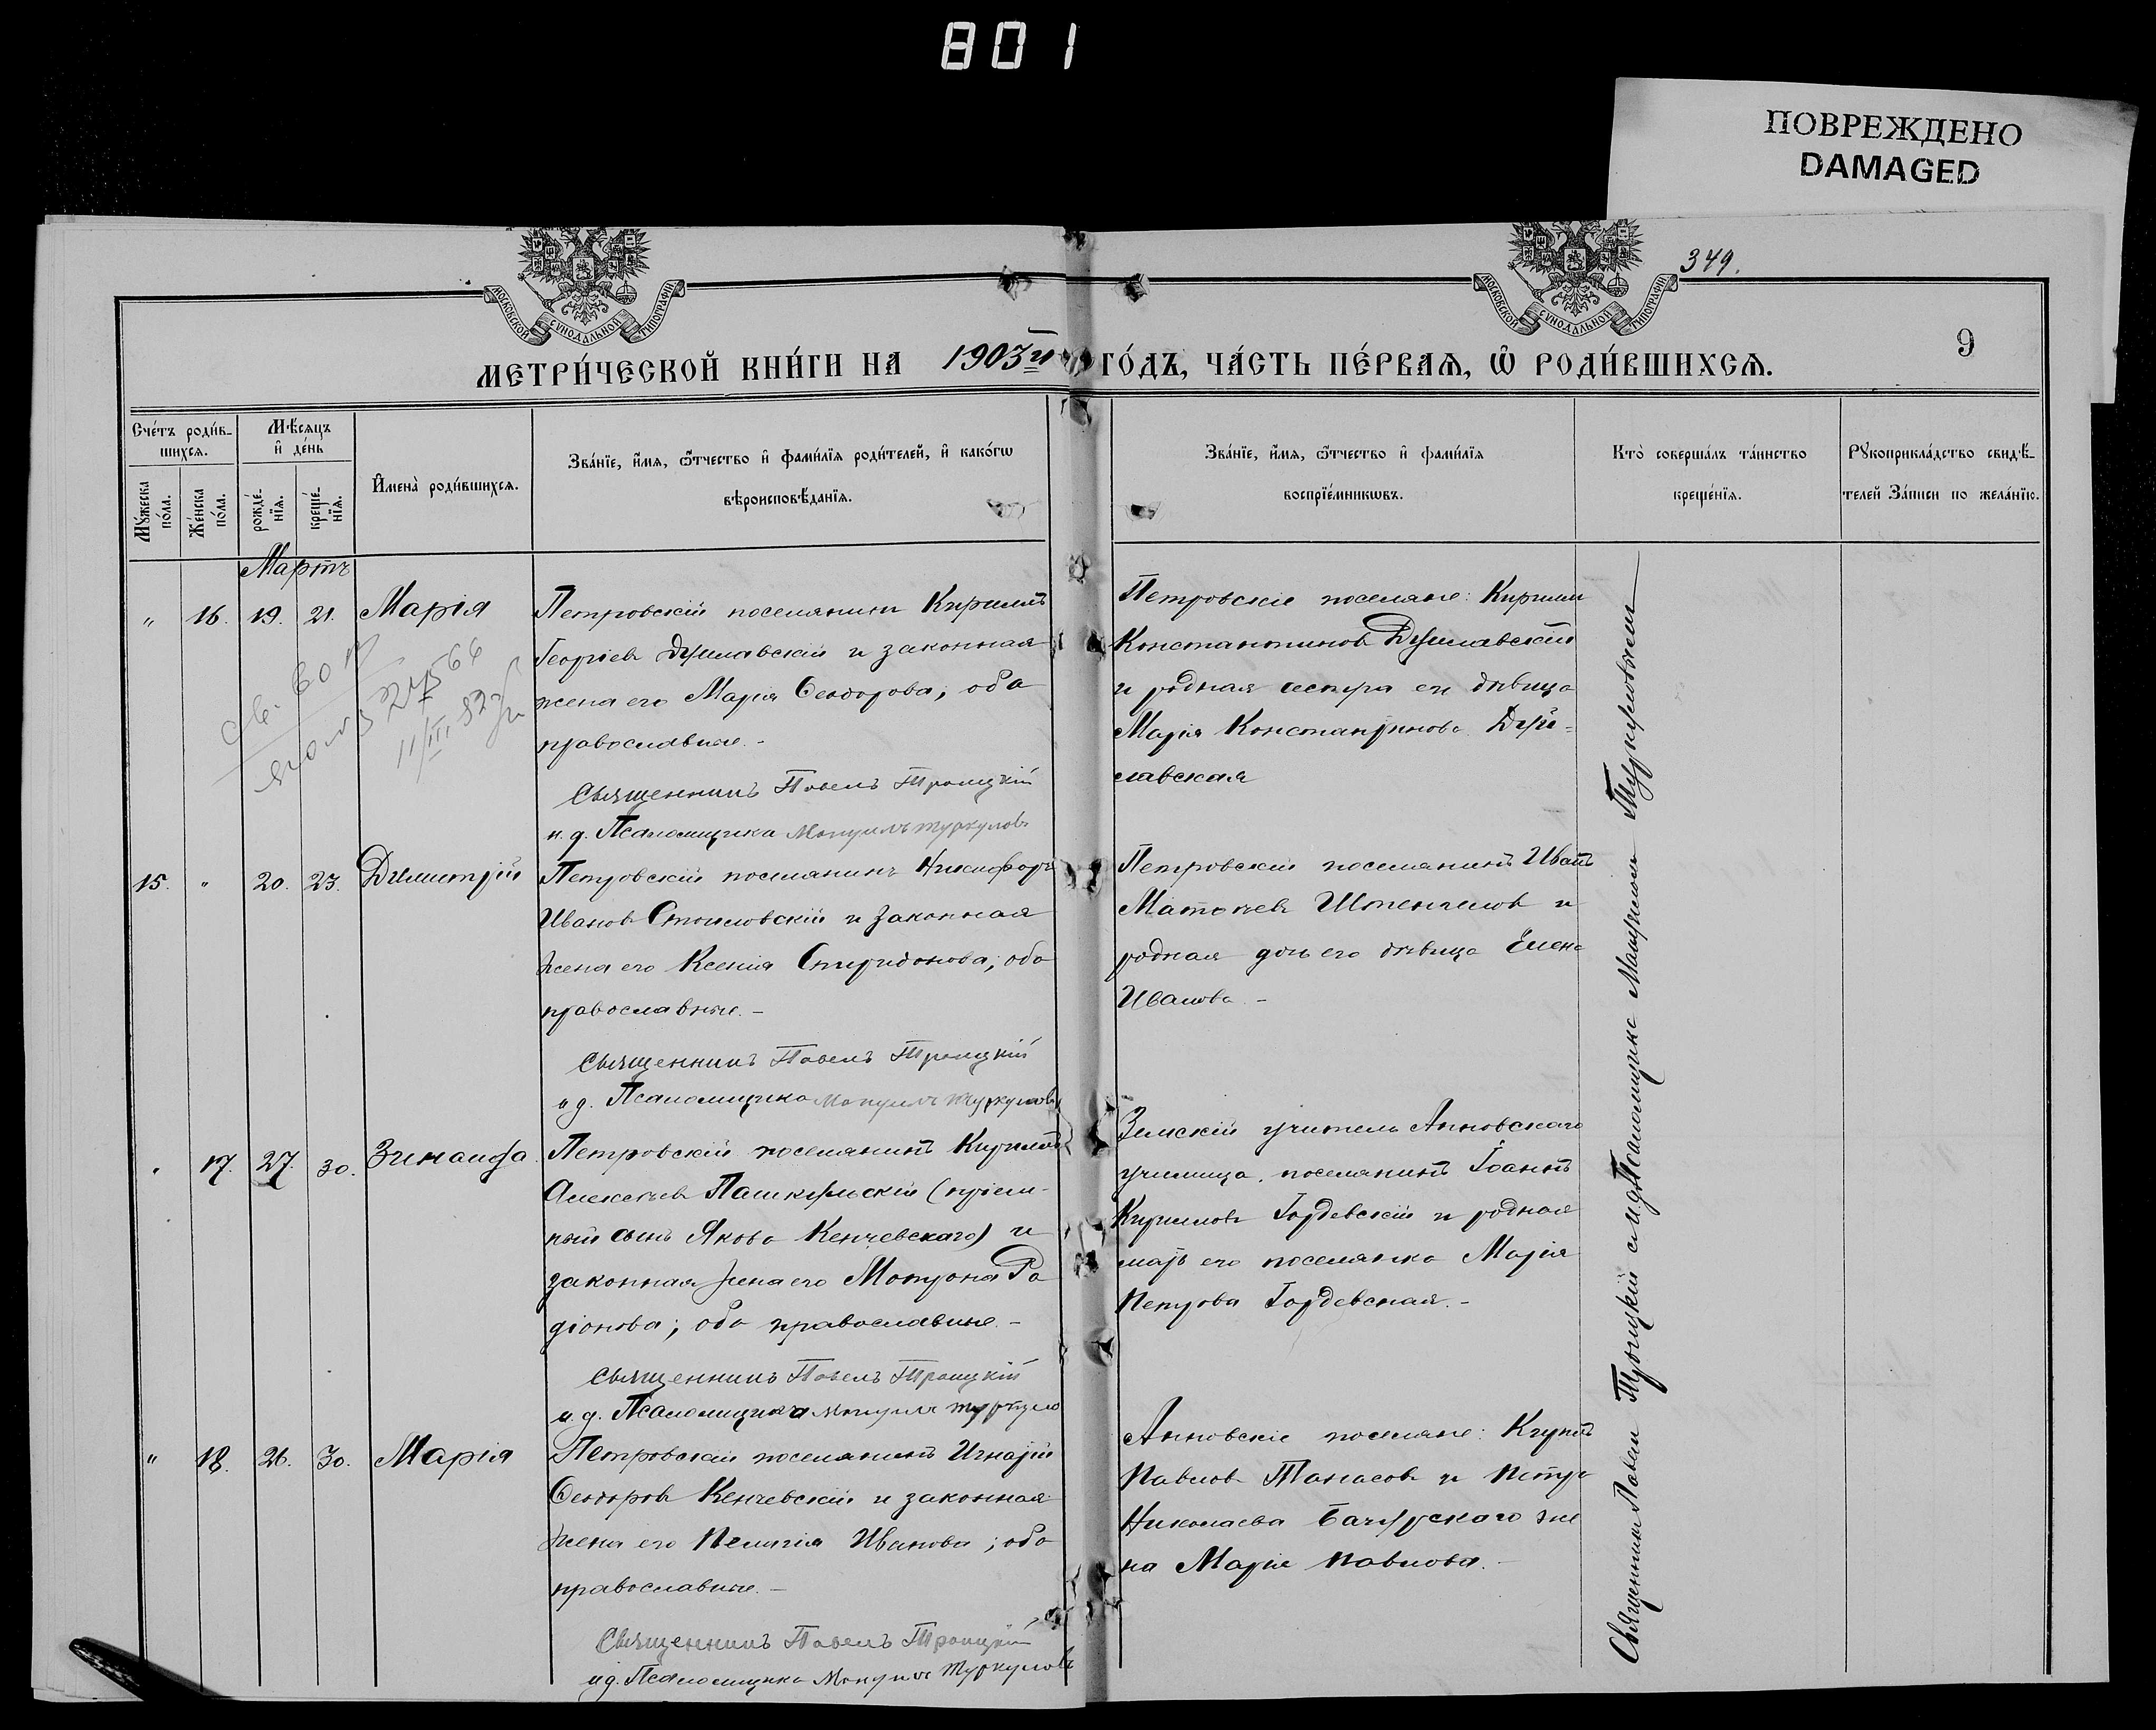 801
ПОВРЕЖДЕНО
DAMAGED
349.
МОСКОВСКОЙ СУНОДАЛЬНОЙ ТИПОГРАФІИ
МОСКОВСКОЙ СУНОДАЛЬНОЙ ТИПОГРАФІИ
9
МЕТРИ́ЧЕСКОЙ КНИ́ГИ НА 1903й ГО́ДЪ, ЧА́СТЬ ПЕ́РВАѦ, Ѡ҆ РОДИ́ВШИХСѦ.
Сче́тъ роди́в-
шихсѧ.
Мꙋ́жеска по́ла.
Же́нска по́ла.
Мѣ́сѧцъ
и҆ де́нь
рожде́-
нїѧ.
креще́-
нїѧ.
И҆мена̀ роди́вшихсѧ.
Зва́нїе, и҆́мѧ, ѻ҆́тчество и҆ фами́лїѧ роди́телей, и҆ како́гѡ
вѣроисповѣ́данїѧ.
Зва́нїе, и҆́мѧ, ѻ҆́тчество и҆ фами́лїѧ
воспрїе́мникѡвъ.
Кто̀ соверша́лъ та́инство
креще́нїѧ.
Рꙋкоприкла́дство свидѣ́-
телей За́писи по жела́нїю.
Мартъ
" 16. 19. 21. Марія
Петровскій поселянинъ Кириллъ
Георгіевъ Дуйлавскій и законная
жена его Марія Ѳеодорова; оба
православные.-
Священникъ Павелъ Троицкій
и. д. Псаломщика Мануилъ Туркуловъ
Петровскіе поселяне: Кириллъ
Константиновъ Дуйлавскій
и родная сестра его дѣвица
Марія Константинова Дуй-
лавская
11/III.
15. " 20. 23. Димитрій
Петровскій поселянинъ Никифоръ
Ивановъ Стоиловскій и законная
жена его Ксенія Спиридонова; оба
православные.-
Священникъ Павелъ Троицкій
и д. Псаломщика Мануилъ Туркуловъ
Петровскій поселянинъ Иванъ
Матвеевъ и
родная дочь его дѣвица Елена
Иванова.-
" 17. 27. 30. Зинаида
Петровскій поселянинъ Кириллъ
Алексѣевъ Пашкульскій (пріем-
ный сынъ Якова Кенчевскаго) и
законная жена его Матрона Ро
діонова; оба православные.-
Священникъ Павелъ Троицкій
и. д. Псаломщика Мануилъ Туркуло
Земскій учитель Анновскаго
училища, поселянинъ Іоаннъ
Кирилловъ Гайдевскій и родная
мать его поселянка Марія
Петрова Гайдевская.-
" 18. 26. 30. Марія
Петровскій поселянинъ Игнатій
Ѳеодоровъ Кенчевскій и законная
жена его Пелагія Иванова; оба
православные.-
Священникъ Павелъ Троицкій
и д. Псаломщика Мануилъ Туркуловъ
Анновскіе поселяне:
Павловъ Танасовъ и Петра
Николаева жe
на Марія Павлова.-
Священникъ Павелъ Троицкій с и.д. Псаломщика Мануиломъ Туркуловымъ